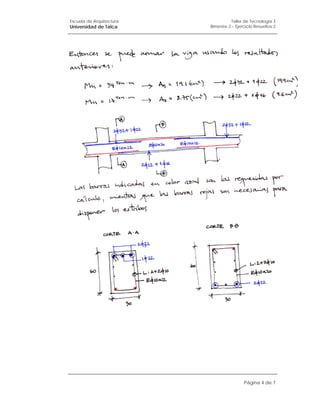 Escuela de Arquitectura
Universidad de Talca
Taller de Tecnología 1
Bimestre 2 – Ejercicio Resueltos 2
Entonces se puede armar la viga usando los resultados
anteriores:
Mn = 39 ton-m → As = 19.1 (cm²) → 2φ32 + 1φ22 (19.9 cm²)
Mn = 17 ton-m → As = 8.75 (cm²) → 2φ22 + 1φ16 (9.6 cm²)
A
B
2φ32+1φ22
2φ32+1φ22
Eφ10@12
Eφ10@20
Eφ10@12
A
2φ22 + 1φ16
B
Las barras indicadas en color azul son las requeridas por
calculo, mientras que las barras rojas son necesarias para
disponer los estribos
CORTE A-A
CORTE B-B
2φ32
1φ22
60
L: 2+2φ10
Eφ10@12
30
60
L: 2+2φ10
Eφ10@20
2φ22
30
Página 4 de 7